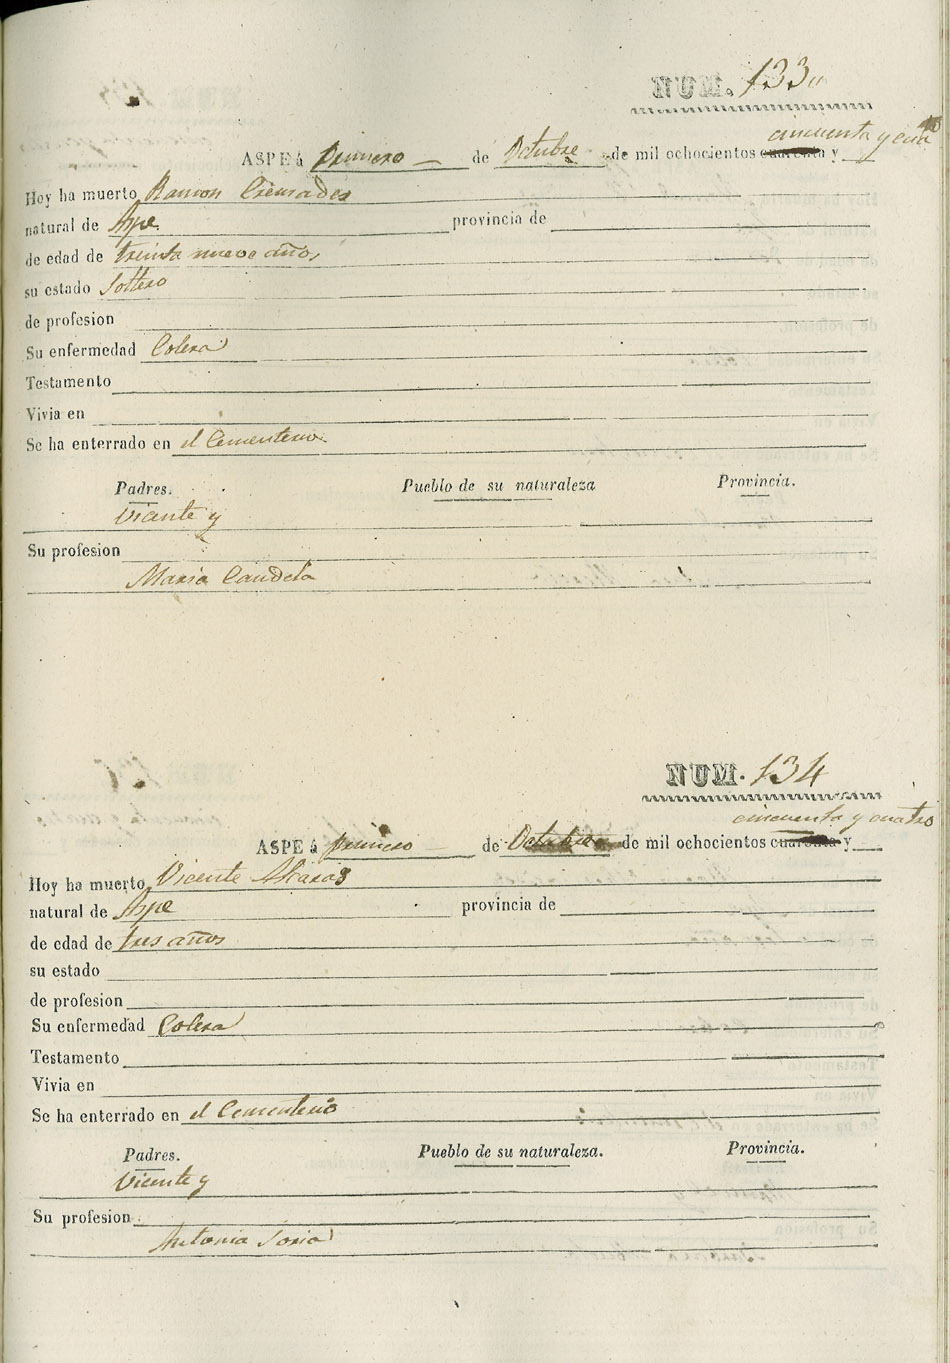 NUM. 133
cincuenta y cuatro
ASPE á primero de Octubre de mil ochocientos cuarenta y
Hoy ha muerto Ramon Cremades
natural de Aspe provincia de
de edad de treinta nueve años
su estado Soltero
de profesion
Su enfermedad Colera
Testamento
Vivia en
Se ha enterrado en el Cementerio
Padres. Pueblo de su naturaleza Provincia.
Vicente y
Su profesion
Maria Candela
NUM. 134
cincuenta y cuatro
ASPE á primero de Octubre de mil ochocientos cuarenta y
Hoy ha muerto Vicente
natural de Aspe provincia de
de edad de tres años
su estado
de profesion
Su enfermedad Colera
Testamento
Vivia en
Se ha enterrado en el Cementerio
Padres. Pueblo de su naturaleza. Provincia.
Vicente y
Su profesion
Antonia Soria